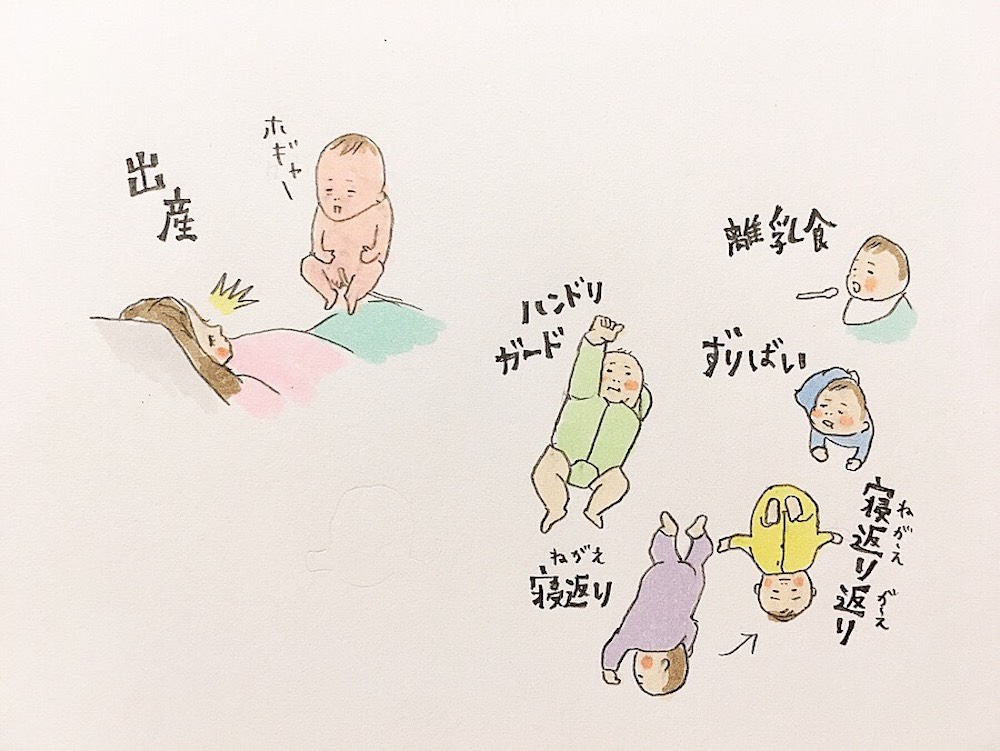 出産
ホギャー
ハンドリ
ガード
ねがえ
寝返り
ねがえ がえ
寝返り返り
ずりばい
離乳食